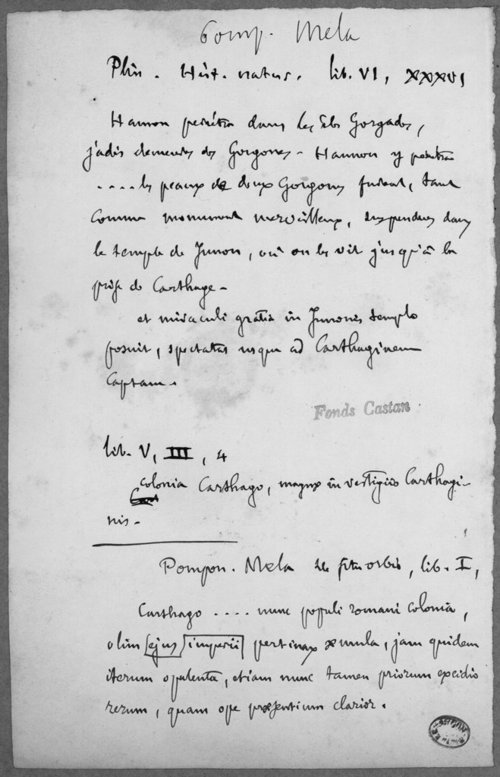 Pomp. Mela
Plin. Hist. natur. lib. VI, XXXVI
Hannon pénétra dans les îles Gorgades,
jadis demeures des Gorgones - Hannon y pénétra
.... les peaux de deux Gorgones furent, tant
comme monument merveilleux, suspendues dans
le temple de Junon, où on les vit jusqu'à la
prise de Carthage -
et miraculi gratia in Junonis templo
posuit, spectatas usque ad Carthaginem
captam -
Fonds Castan
lib. V, III, 4
colonia Carthago, magnæ in vestigiis Carthagi-
nis -
Pompon. Mela de situ orbis, lib. I,
Carthago .... nunc populi romani colonia,
olim ejus imperii pertinax æmula, jam quidem
iterum opulenta, etiam nunc tamen priorum excidio
rerum, quam ope præsentium clarior.